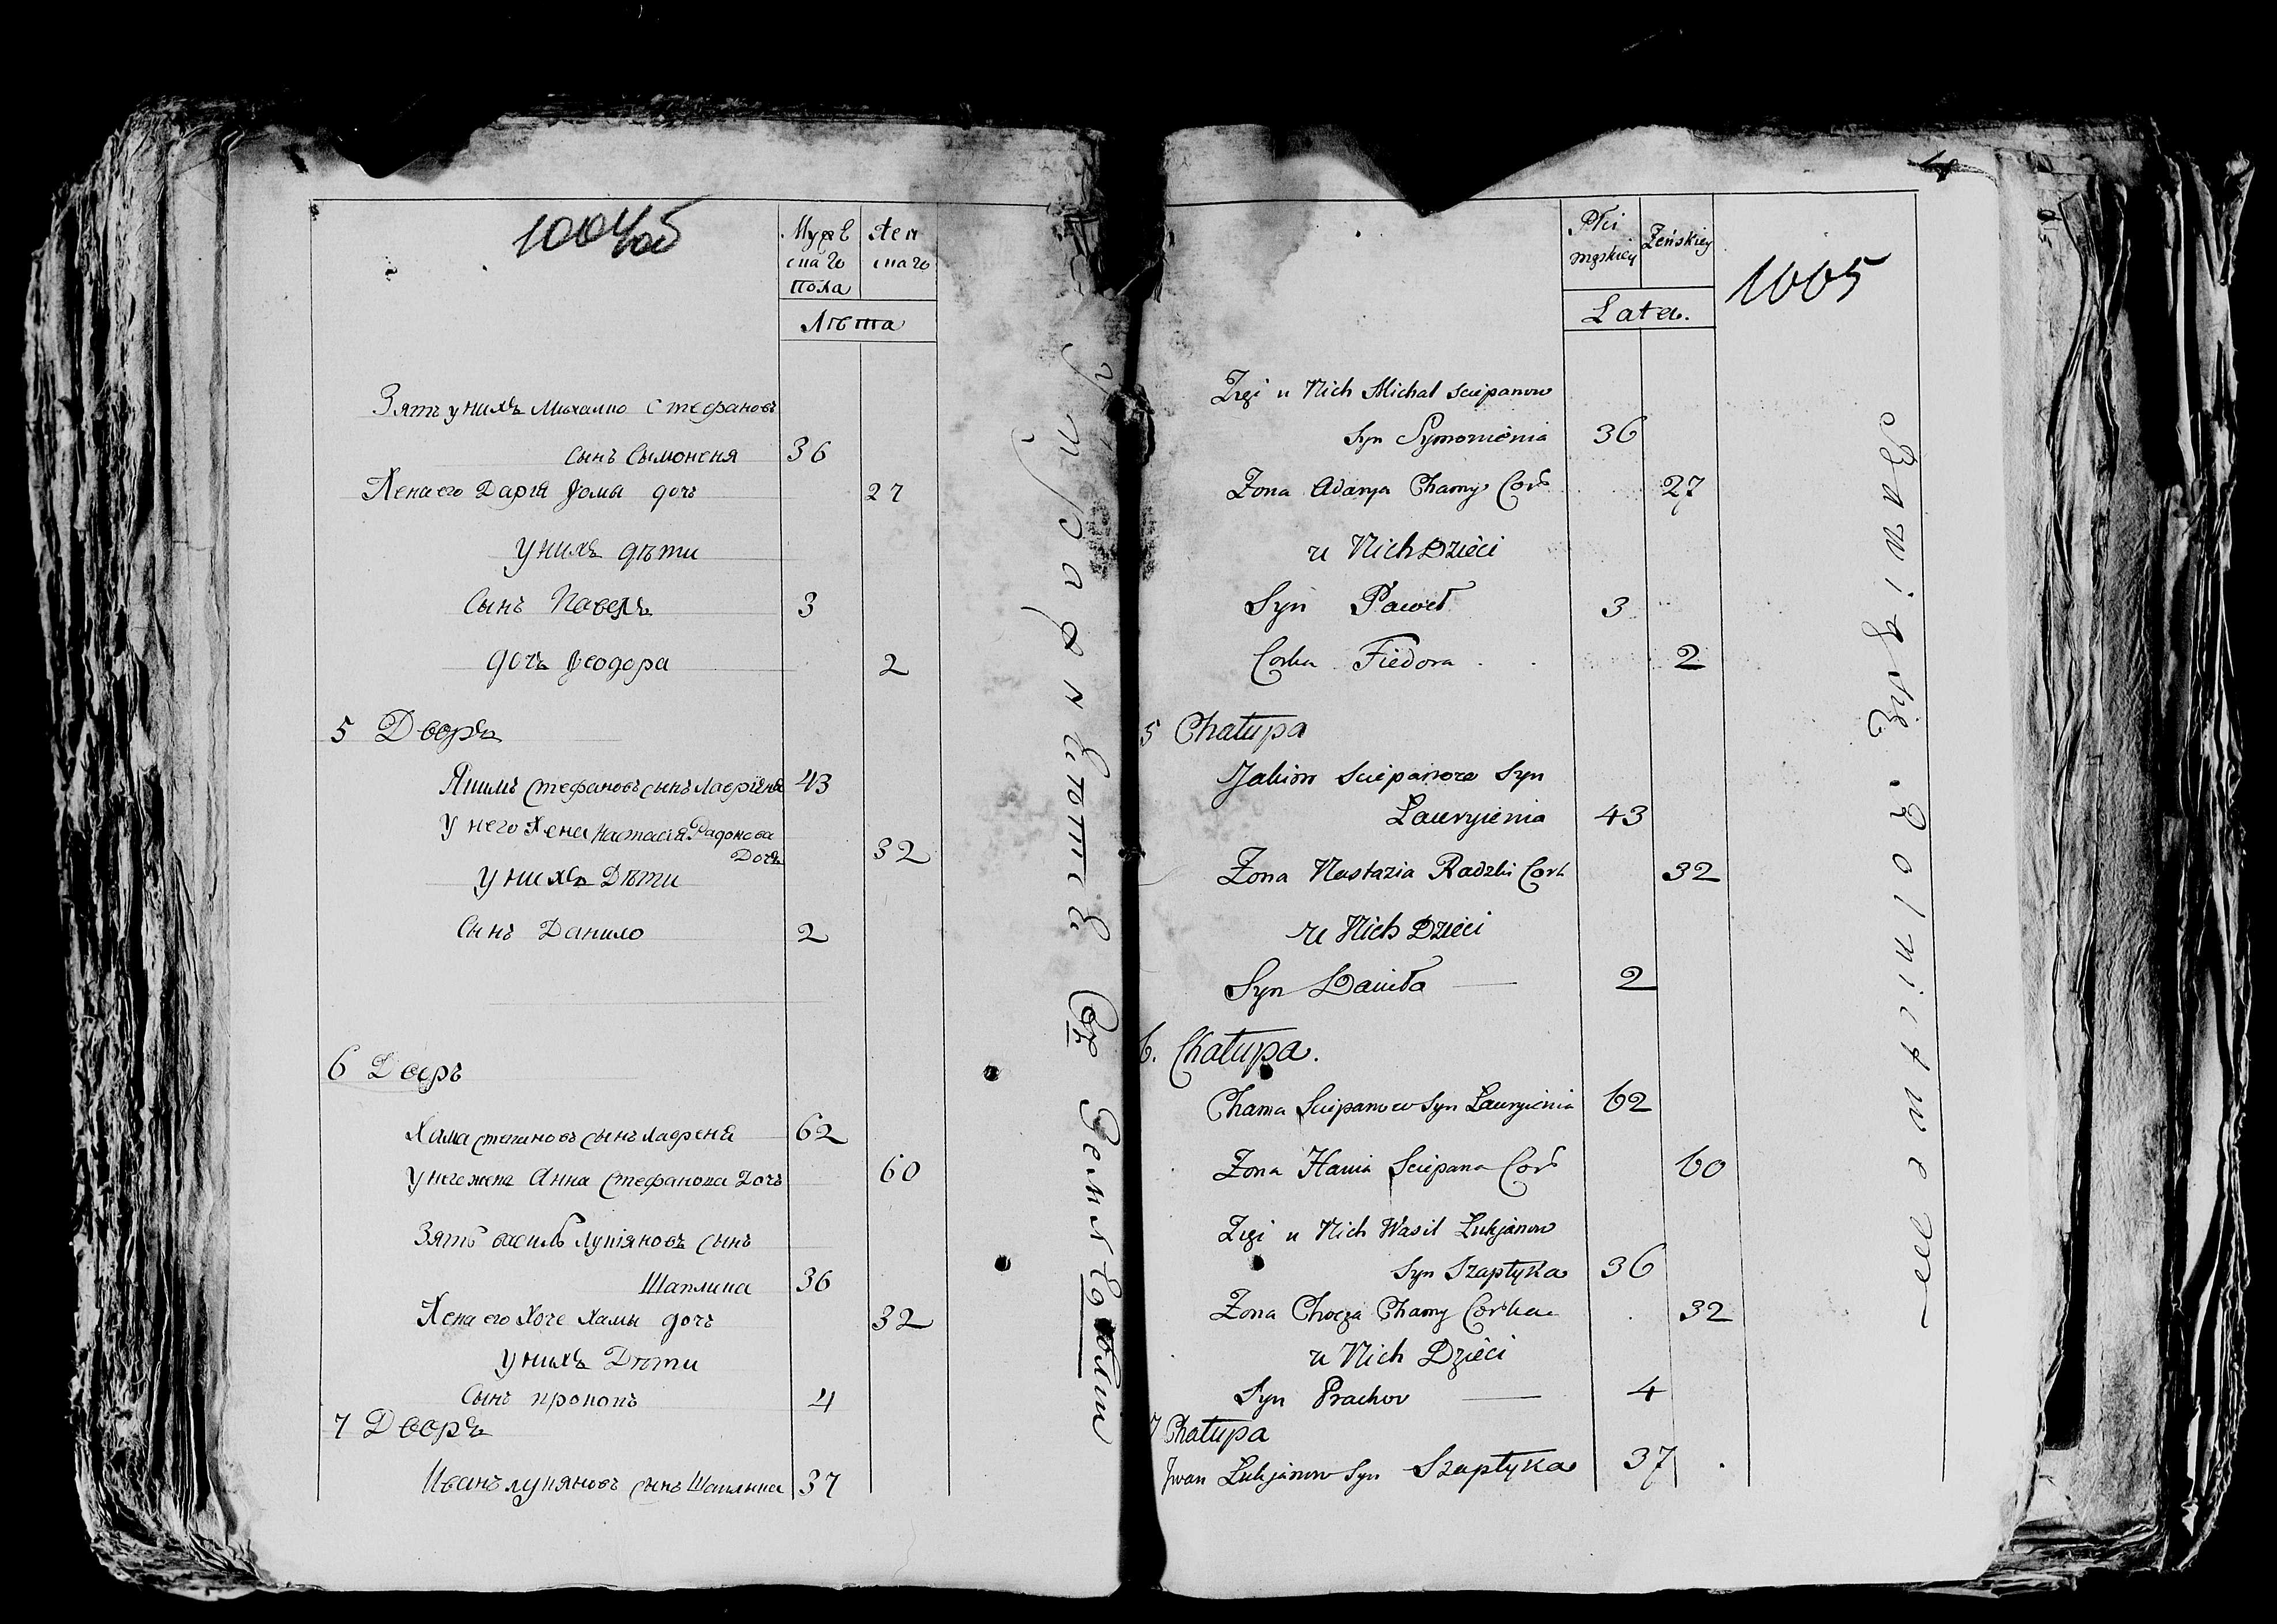 1004 об
Мужескаго пола
Женскаго
Лѣта
Зять у нихъ Михайло Стефановъ
сынъ Сымоненя 36
Жена его Дарія Хомы дочъ 27
у нихъ дѣти
Сынъ Павелъ 3
дочъ Ѳеодора 2
5 Дворъ
Якимъ Стефановъ сынъ Лавриеня 43
У него Жена Настасія Радонова
Дочъ 32
у нихъ Дѣти
Сынъ Данило 2
6 Дворъ
Хама Степановъ сынъ Лавреня 62
у него жена Анна Стефанова Дочъ 60
Зять василь Лукіяновъ сынъ
Шаплыка 36
Жена его Хоче Хамы дочъ 32
у нихъ Дѣти
Сынъ прокопъ 4
7 Дворъ
Иванъ лукяновъ сынъ Шаплыка 37
Płci męskiey
Żeńskiey
1005
Lata.
Zięć u Nich Michał Sciepanow
Syn Symonienia 36
Żona Adarya Chamy Cork 27
u Nich Dzieci
Syn Paweł 3
Corka Fiedora 2
5 Chałupa
Jakim Sciepanow Syn
Lauryienia 43
Żona Nastazia Radzki Cork 32
u Nich Dzieci
Syn Daniła 2
6. Chałupa.
Chama Sciepanow Syn Lauryienia 62
Żona Hania Sciepana Cork 60
Zięć u Nich Wasil Lukjanow
Syn Szapłyka 36
Żona Chocza Chamy Corka 32
u Nich Dzieci
Syn Prachor 4
7 Chałupa
Iwan Lukjanow Syn Szapłyka 37